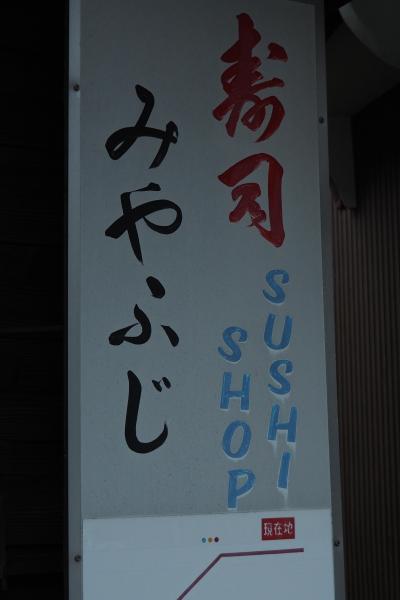 寿司
SUSHI
SHOP
みやふじ
現在地